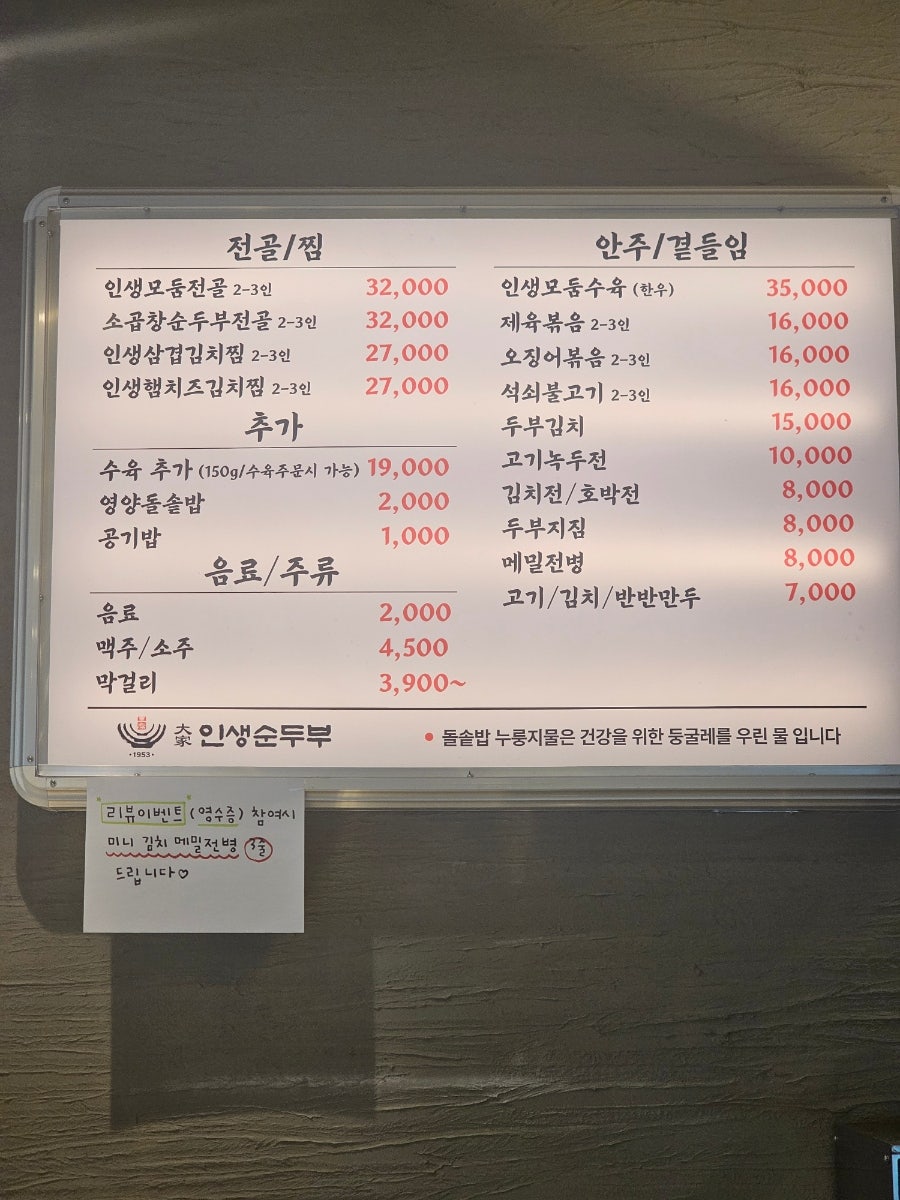 전골/찜
인생모둠전골 2-3인 32,000
소곱창순두부전골 2-3인 32,000
인생삼겹김치찜 2-3인 27,000
인생햄치즈김치찜 2-3인 27,000
추가
수육 추가 (150g/수육주문시 가능) 19,000
영양돌솥밥 2,000
공기밥 1,000
음료/주류
음료 2,000
맥주/소주 4,500
막걸리 3,900~
안주/곁들임
인생모둠수육 (한우) 35,000
제육볶음 2-3인 16,000
오징어볶음 2-3인 16,000
석쇠불고기 2-3인 16,000
두부김치 15,000
고기녹두전 10,000
김치전/호박전 8,000
두부지짐 8,000
메밀전병 8,000
고기/김치/반반만두 7,000
大家 인생순두부
·1953·
• 돌솥밥 누룽지물은 건강을 위한 둥굴레를 우린 물 입니다
"리뷰이벤트" (영수증) 참여시
미니 김치 메밀전병 3줄
드립니다♡